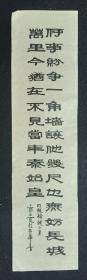 何事紛爭一角墻讓他幾尺也無妨長城
萬里今猶在不見當年秦始皇